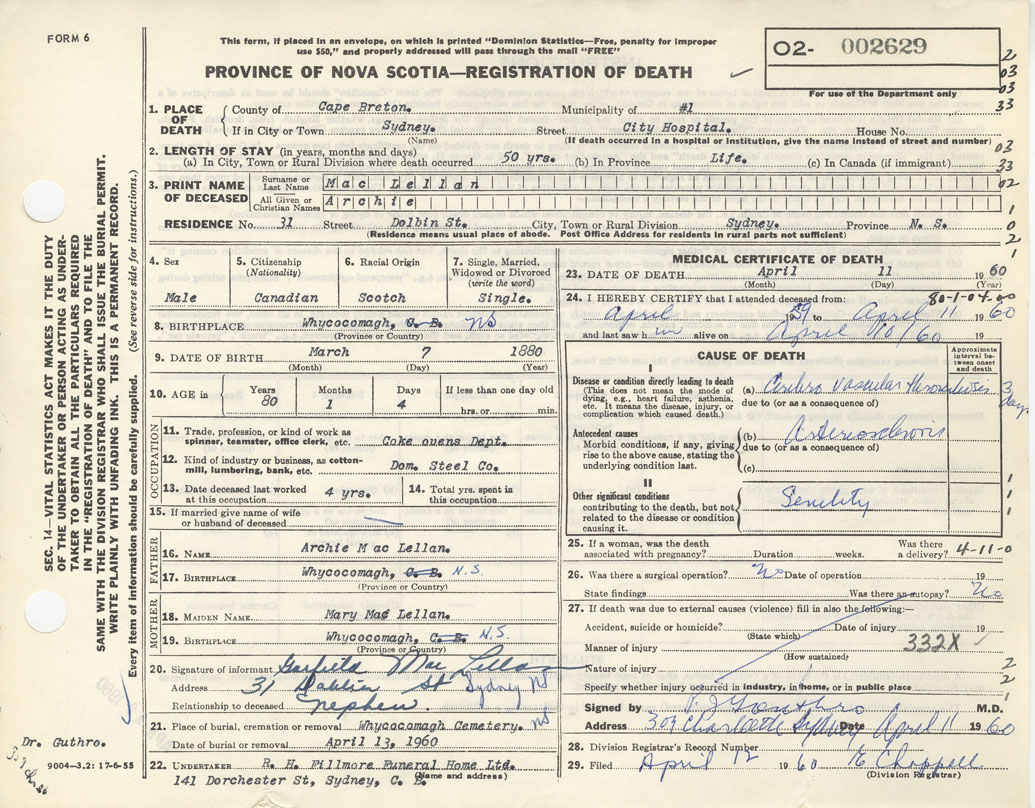 FORM 6
This form, if placed in an envelope, on which is printed "Dominion Statistics—Free, penalty for improper
use $50," and properly addressed will pass through the mail "FREE"
PROVINCE OF NOVA SCOTIA—REGISTRATION OF DEATH
02- 002629
For use of the Department only
2
03
03
33
03
33
02
1
0
2
1. PLACE OF DEATH
County of Cape Breton. Municipality of #1
If in City or Town Sydney. Street City Hospital. House No.
(Name) (If death occurred in a hospital or institution, give the name instead of street and number)
2. LENGTH OF STAY (in years, months and days)
(a) In City, Town or Rural Division where death occurred 50 yrs. (b) In Province Life. (c) In Canada (if immigrant)
3. PRINT NAME OF DECEASED
Surname or Last Name Mac Lellan
All Given or Christian Names Archie
RESIDENCE No. 31 Street Dolbin St. City, Town or Rural Division Sydney. Province N. S.
(Residence means usual place of abode. Post Office Address for residents in rural parts not sufficient)
4. Sex
Male
5. Citizenship
(Nationality)
Canadian
6. Racial Origin
Scotch
7. Single, Married,
Widowed or Divorced
(write the word)
Single.
8. BIRTHPLACE Whycocomagh, C. B. NS
(Province or Country)
9. DATE OF BIRTH March 7 1880
(Month) (Day) (Year)
10. AGE in
Years Months Days If less than one day old
80 1 4 hrs. or min.
OCCUPATION
11. Trade, profession, or kind of work as
spinner, teamster, office clerk, etc. Coke ouens Dept.
12. Kind of industry or business, as cotton-
mill, lumbering, bank, etc. Dom. Steel Co.
13. Date deceased last worked
at this occupation 4 yrs.
14. Total yrs. spent in
this occupation
15. If married give name of wife
or husband of deceased —
FATHER
16. NAME Archie Mac Lellan.
17. BIRTHPLACE Whycocomagh, C. B. N.S.
(Province or Country)
MOTHER
18. MAIDEN NAME Mary Mac Lellan.
19. BIRTHPLACE Whycocomagh, C. B. N.S.
(Province or Country)
20. Signature of informant Garfield Mac Lellan
Address 31 Dahlin St Sydney NS
Relationship to deceased nephew.
21. Place of burial, cremation or removal Whycocomagh Cemetery. NS
Date of burial or removal April 13, 1960
22. UNDERTAKER R. H. Fillmore Funeral Home Ltd.
141 Dorchester St, Sydney, C. B.
(Name and address)
MEDICAL CERTIFICATE OF DEATH
23. DATE OF DEATH April 11 1960
(Month) (Day) (Year)
80-1-04.00
24. I HEREBY CERTIFY that I attended deceased from:
April 1959 to April 11 1960
and last saw him alive on April 10/60
CAUSE OF DEATH
Approximate
interval be-
tween onset
and death
I
Disease or condition directly leading to death
(This does not mean the mode of
dying, e.g., heart failure, asthenia,
etc. It means the disease, injury, or
complication which caused death.)
(a) Cerebro vascular thrombosis 3 days
due to (or as a consequence of)
Antecedent causes
Morbid conditions, if any, giving
rise to the above cause, stating the
underlying condition last.
(b) Arteriosclerosis
due to (or as a consequence of)
(c)
II
Other significant conditions
contributing to the death, but not
related to the disease or condition
causing it.
Senility
1
1
1
25. If a woman, was the death
associated with pregnancy? Duration weeks. Was there
a delivery? 4-11-0
26. Was there a surgical operation? No Date of operation 19
State findings Was there an autopsy? No
27. If death was due to external causes (violence) fill in also the following:—
Accident, suicide or homicide? Date of injury 19
(State which)
Manner of injury 332X
(How sustained)
Nature of injury 2
Specify whether injury occurred in industry, in home, or in public place 2
Signed by M.D.
Address 309 Charlotte Sydney Date April 11 1960
28. Division Registrar's Record Number
29. Filed April 12 1960 E Chappell
(Division Registrar)
SEC. 14—VITAL STATISTICS ACT MAKES IT THE DUTY
OF THE UNDERTAKER OR PERSON ACTING AS UNDER-
TAKER TO OBTAIN ALL THE PARTICULARS REQUIRED
IN THE "REGISTRATION OF DEATH" AND TO FILE THE
SAME WITH THE DIVISION REGISTRAR WHO SHALL ISSUE THE BURIAL PERMIT.
WRITE PLAINLY WITH UNFADING INK. THIS IS A PERMANENT RECORD.
Every item of information should be carefully supplied. (See reverse side for instructions.)
Dr. Guthro.
9004-3.2: 17-6-55